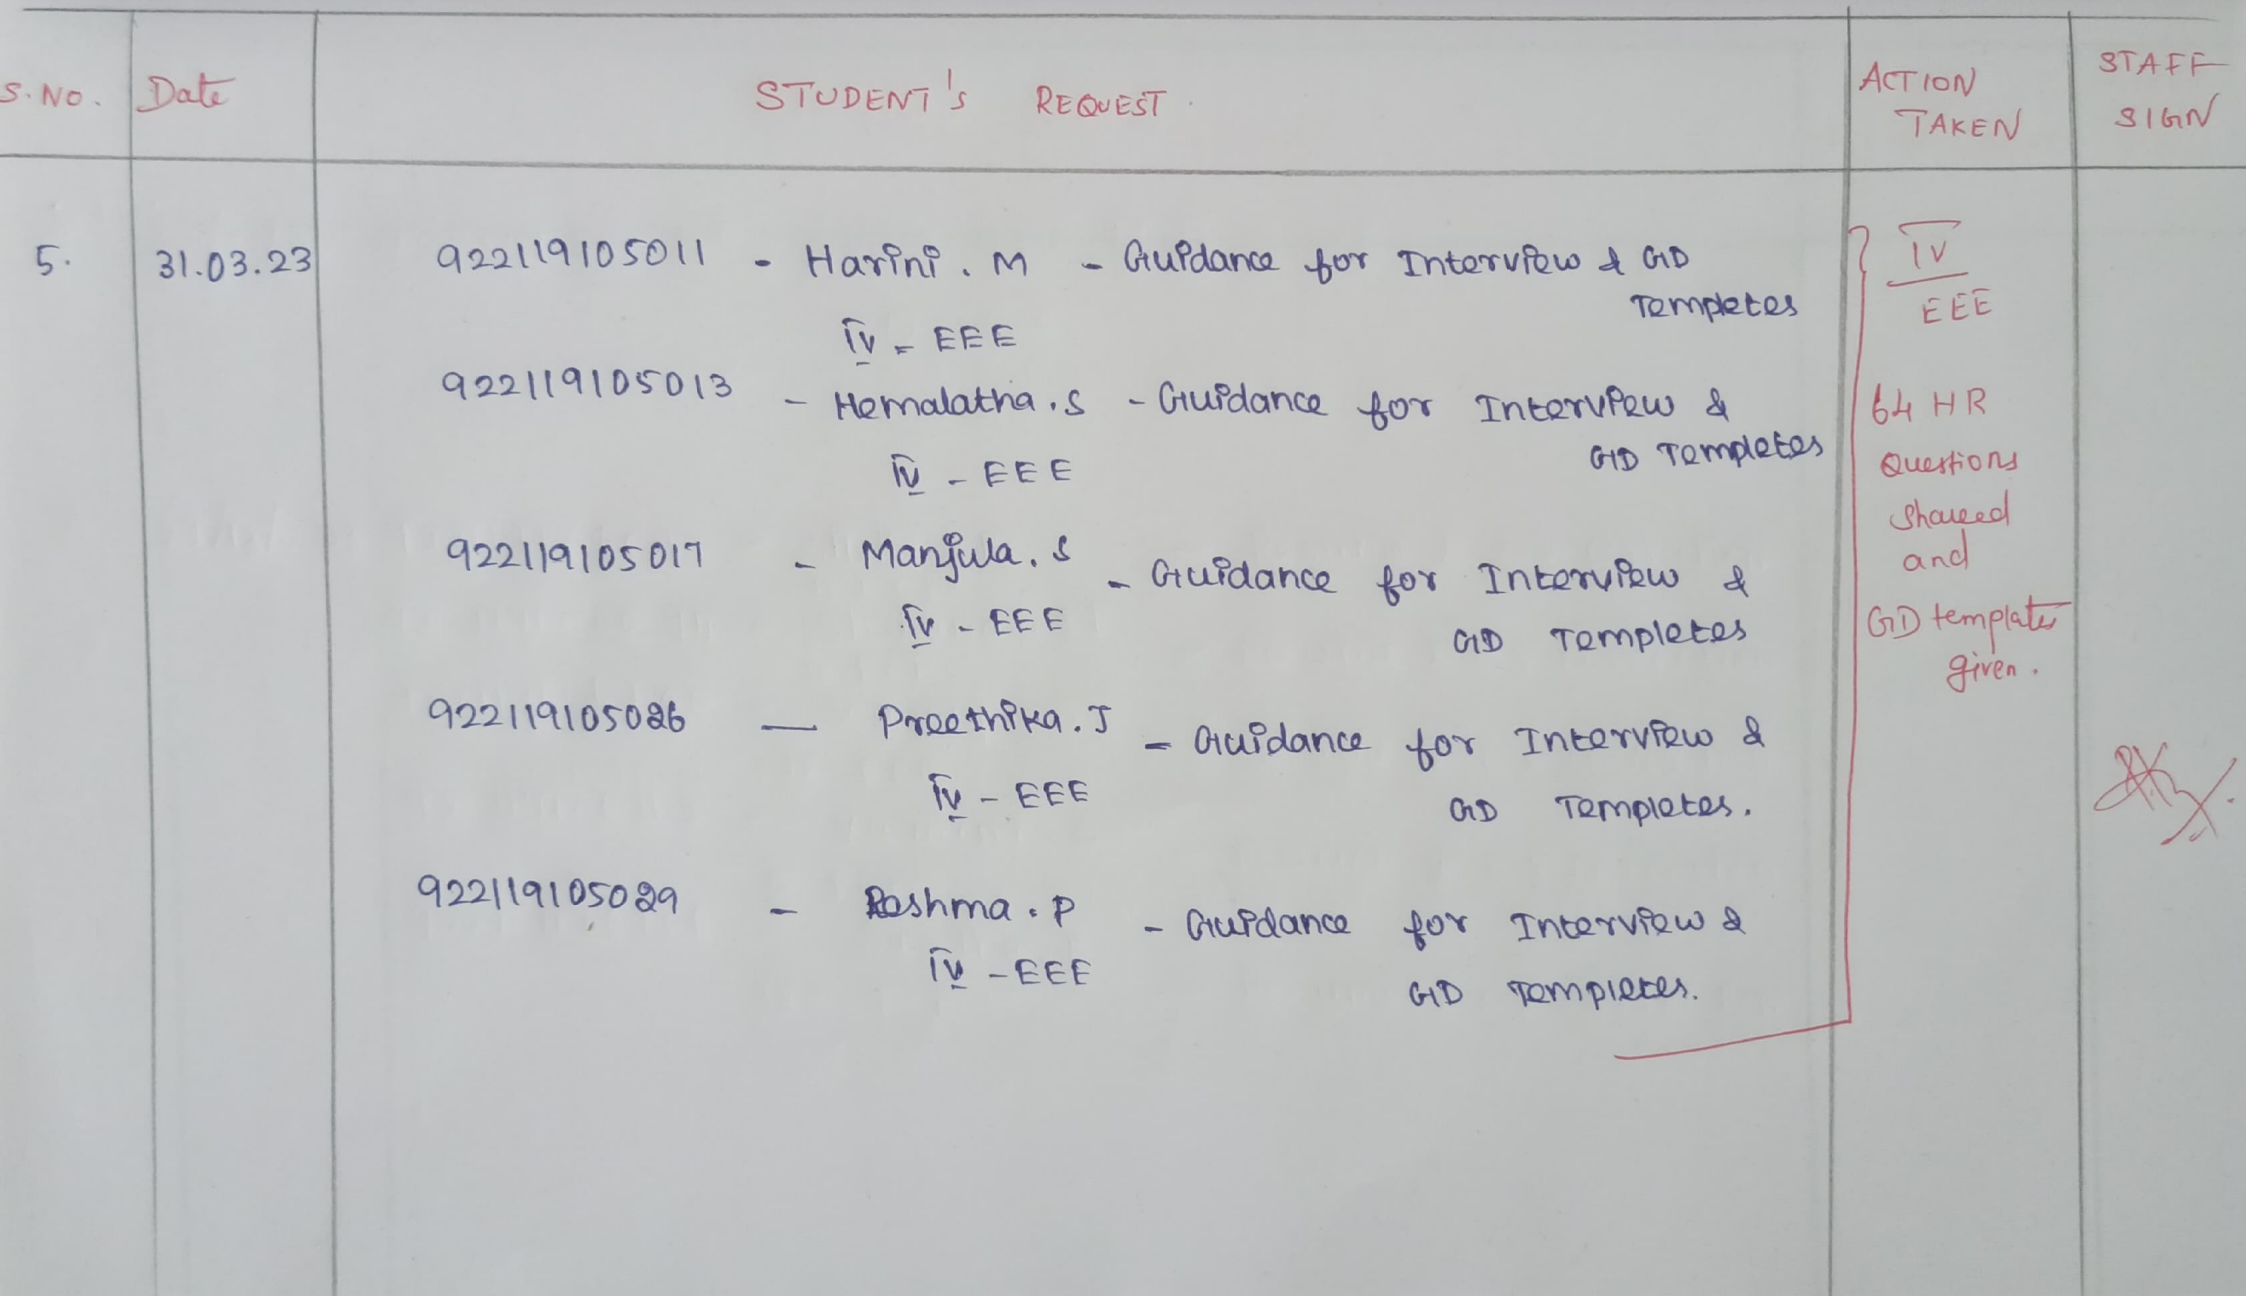 S.No. Date STUDENT's REQUEST. ACTION TAKEN STAFF SIGN
5. 31.03.23 922119105011 - Harini.M - Guidance for Interview & GD
Templetes
IV - EEE
922119105013 - Hemalatha.S - Guidance for Interview &
GD Templetes
IV - EEE
922119105017 - Manjula.S - Guidance for Interview &
IV - EEE GD Templetes
922119105026 — Preethika.J - Guidance for Interview &
IV - EEE GD Templetes.
922119105029 - Reshma.P - Guidance for Interview &
IV - EEE GD Templetes.
IV
EEE
64 HR
Questions
Shared
and
GD templates
given.